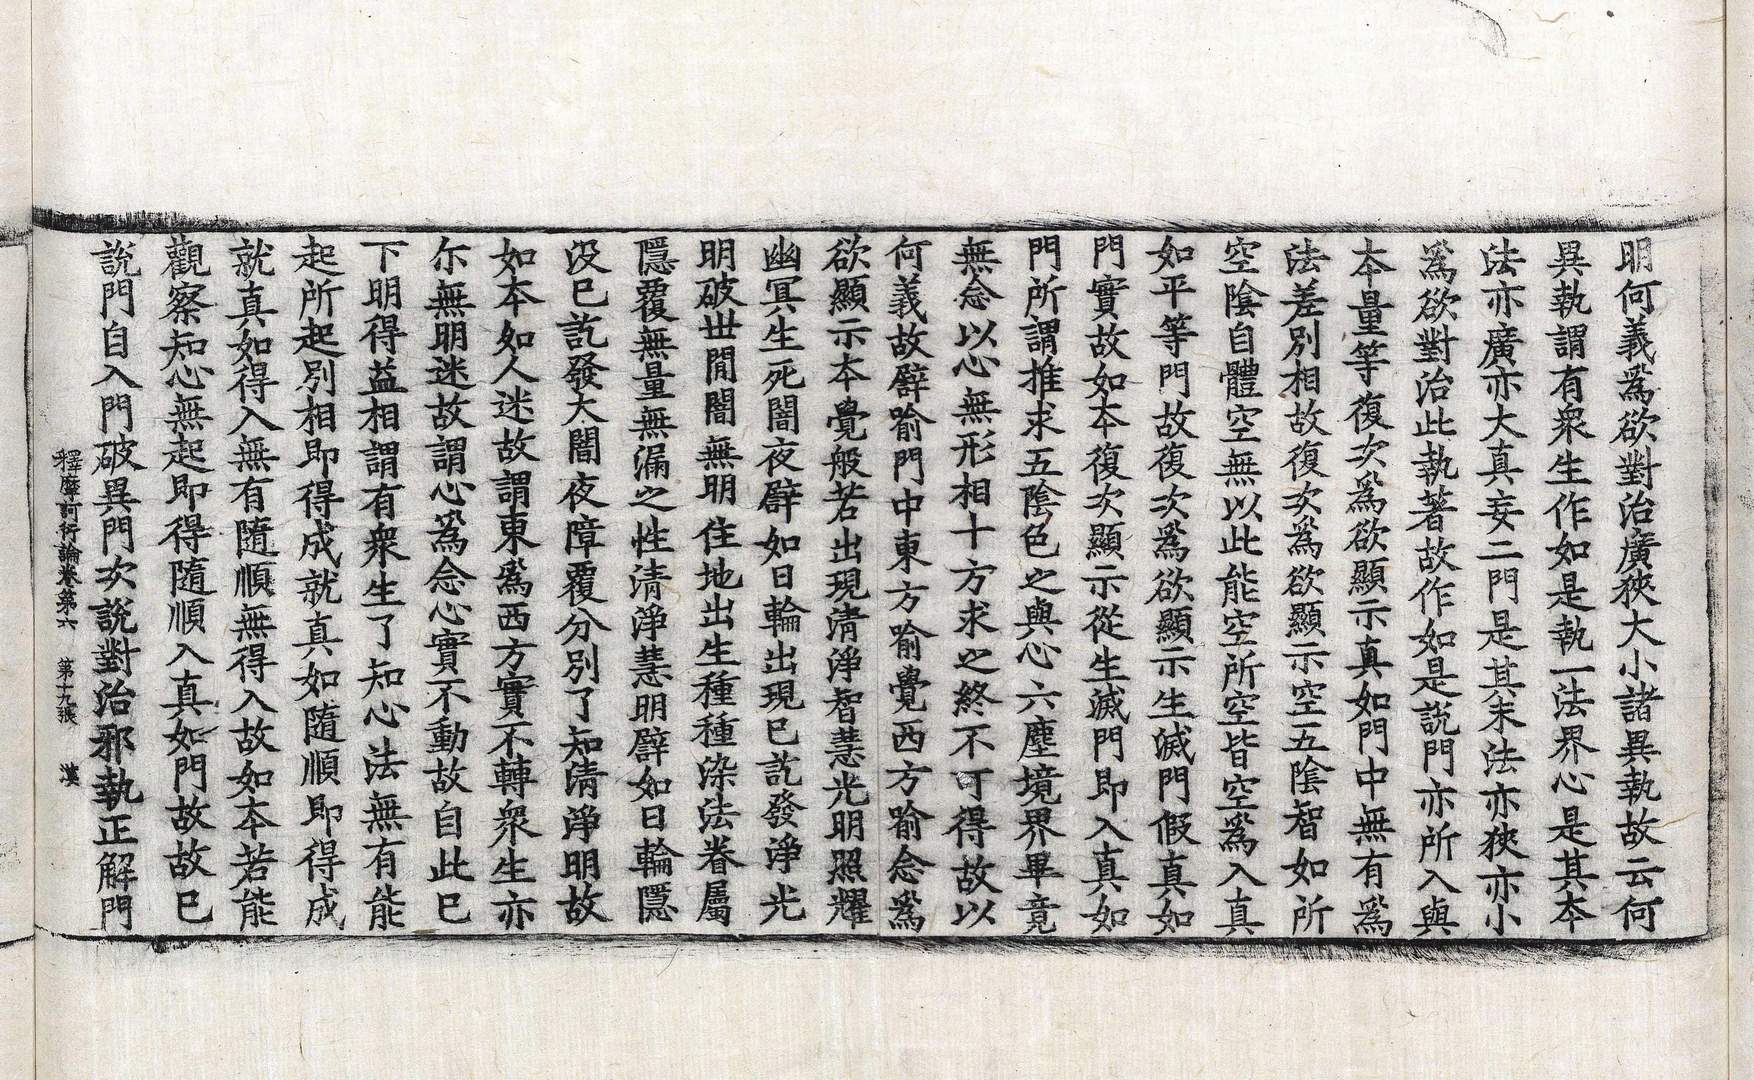 明何義爲欲對治廣狹大小諸異執故云何
異執謂有衆生作如是執一法界心是其夲
法亦廣亦大真妄二門是其末法亦狹亦小
爲欲對治此執著故作如是說門亦所入與
夲量等復次爲欲顯示真如門中無有爲
法差別相故復次爲欲顯示空五陰智如所
空陰自體空無以此能空所空皆空爲入真
如平等門故復次爲欲顯示生滅門假真如
門實故如夲復次顯示從生滅門即入真如
門所謂推求五陰色之與心六塵境界畢竟
無念以心無形相十方求之終不可得故以
何義故譬喻門中東方喻覺西方喻念爲
欲顯示夲覺般若出現清淨智慧光明照耀
幽冥生死闇夜譬如日輪出現已訖發淨光
明破丗閒闇無明住地出生種種染法眷屬
隱覆無量無漏之性清淨慧明譬如日輪隱
没已訖發大闇夜障覆分別了知清淨明故
如夲如人迷故謂東爲西方實不轉衆生亦
尓無明迷故謂心爲念心實不動故自此已
下明得益相謂有衆生了知心法無有能
起所起別相即得成就真如隨順即得成
就真如得入無有隨順無得入故如夲若能
觀察知心無起即得隨順入真如門故故已
說門自入門破異門次說對治邪執正解門
釋摩訶衍論卷第六　第十九張　漢